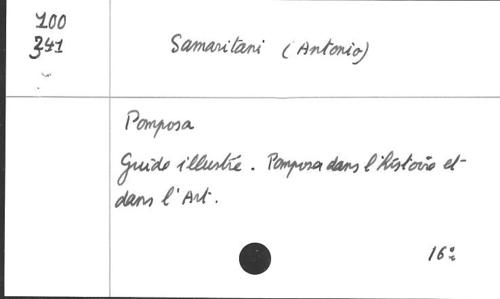 100
241
Samaritani (Antonio)
Pomposa
Guide illustré. Pomposa dans l'histoire et
dans l'Art.
16°